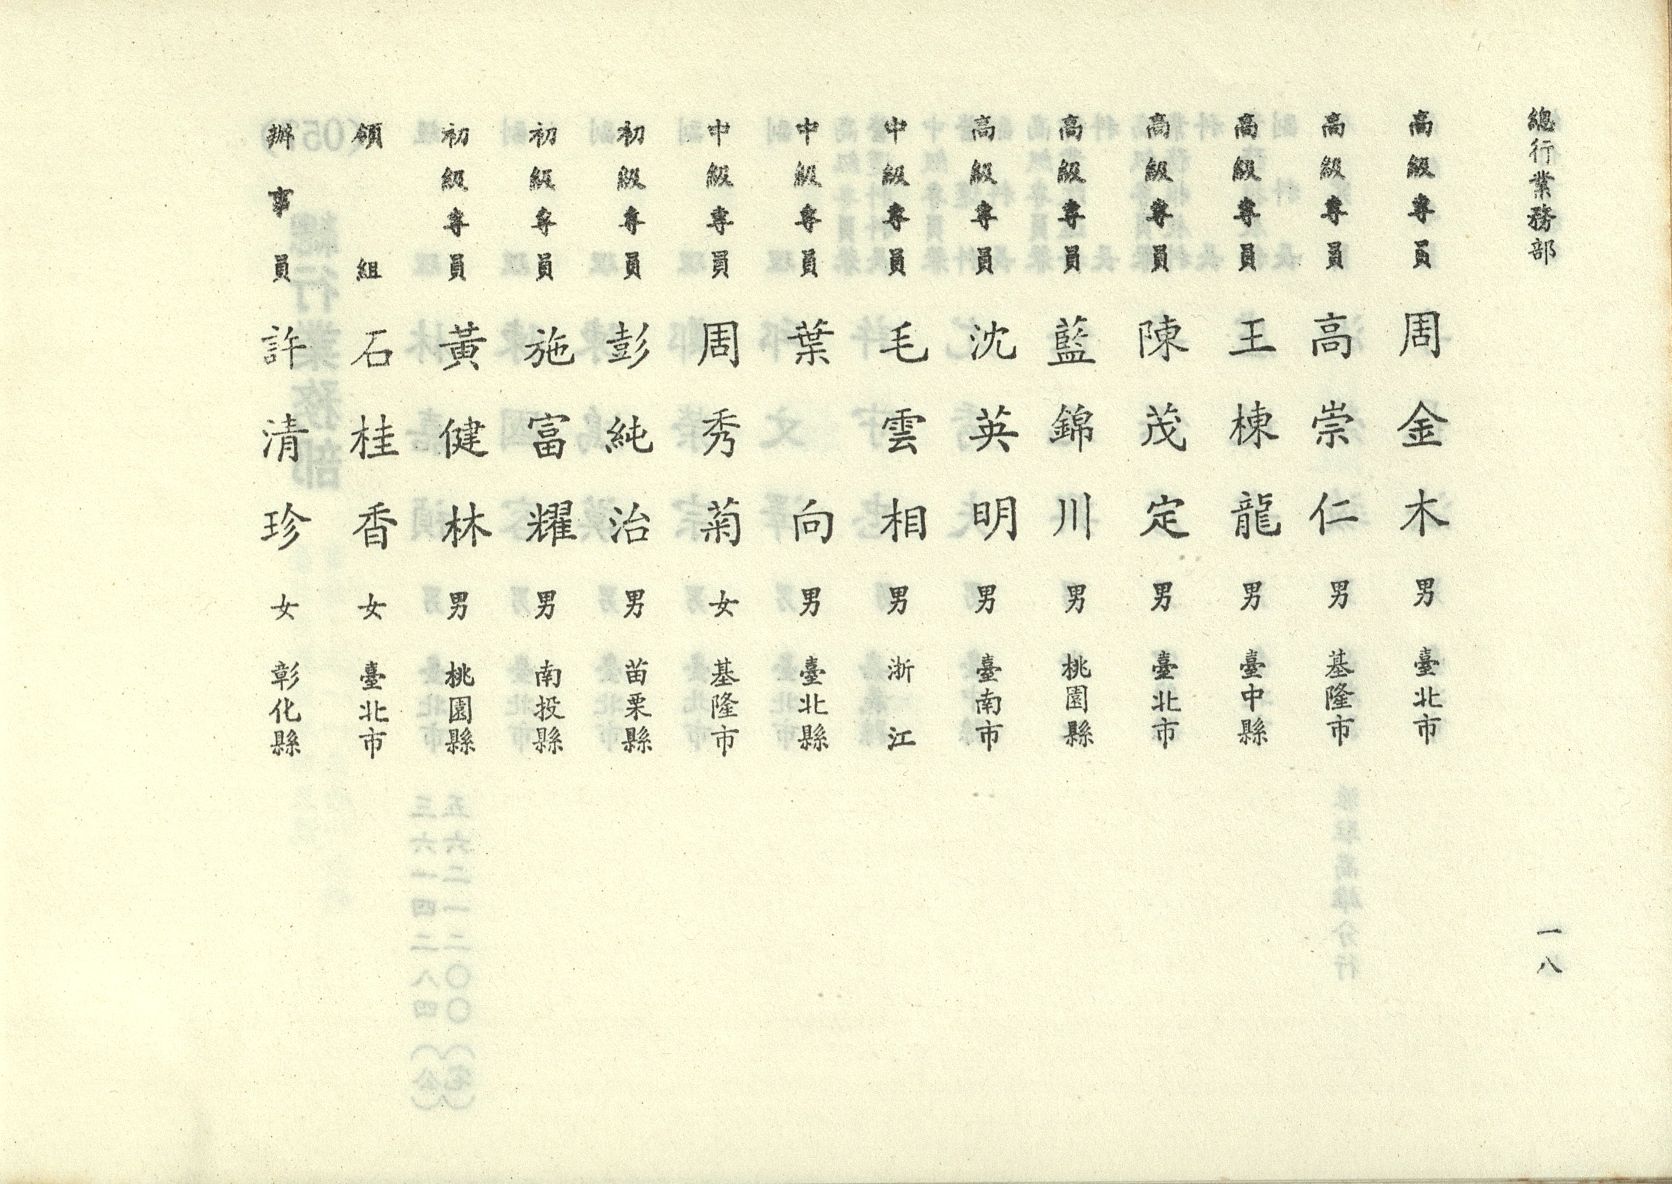 總行業務部
高級專員 周金木 男 臺北市
高級專員 高崇仁 男 基隆市
高級專員 王棟龍 男 臺中縣
高級專員 陳茂定 男 臺北市
高級專員 藍錦川 男 桃園縣
高級專員 沈英明 男 臺南市
中級專員 毛雲相 男 浙江
中級專員 葉向 男 臺北縣
中級專員 周秀菊 女 基隆市
初級專員 彭純治 男 苗栗縣
初級專員 施富耀 男 南投縣
初級專員 黃健林 男 桃園縣
領組 石桂香 女 臺北市
辦事員 許清珍 女 彰化縣
一八